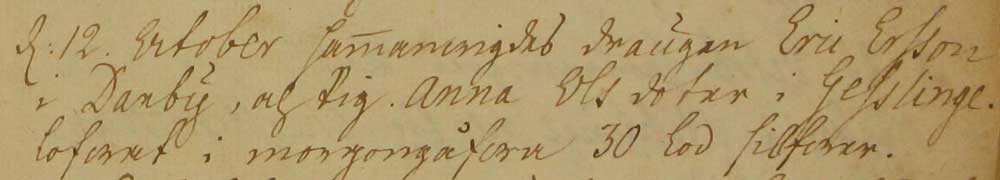 d: 12. October sam̅anwigdes drängen Eric Ersson
i Danby, och Pig. Anna Olsdoter i Gesslinge.
lofwat i morgongåfwa 30 Lod silfwer.